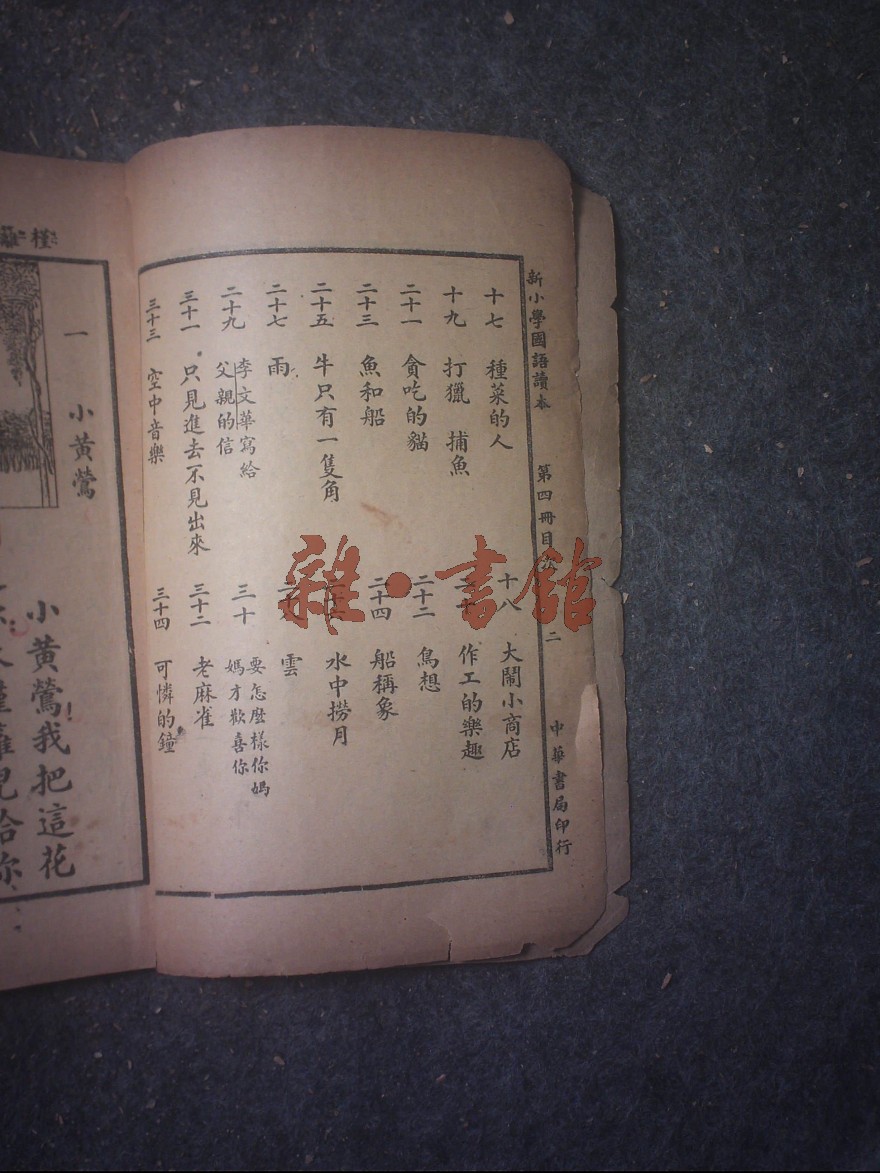 新小學國語讀本 第四冊目次 二 中華書局印行
十七 種菜的人
十八 大鬧小商店
十九 打獵 捕魚
二十 作工的樂趣
二十一 貪吃的貓
二十二 鳥想
二十三 魚和船
二十四 船稱象
二十五 牛只有一隻角
水中撈月
二十七 雨
雲
二十九 李文華寫給
父親的信
三十 要怎麼樣你媽
媽才歡喜你
三十一 只見進去不見出來
三十二 老麻雀
三十三 空中音樂
三十四 可憐的鐘
雜·書館
一 小黃鶯
小黃鶯我把這花
槿籬兒給你
槿籬